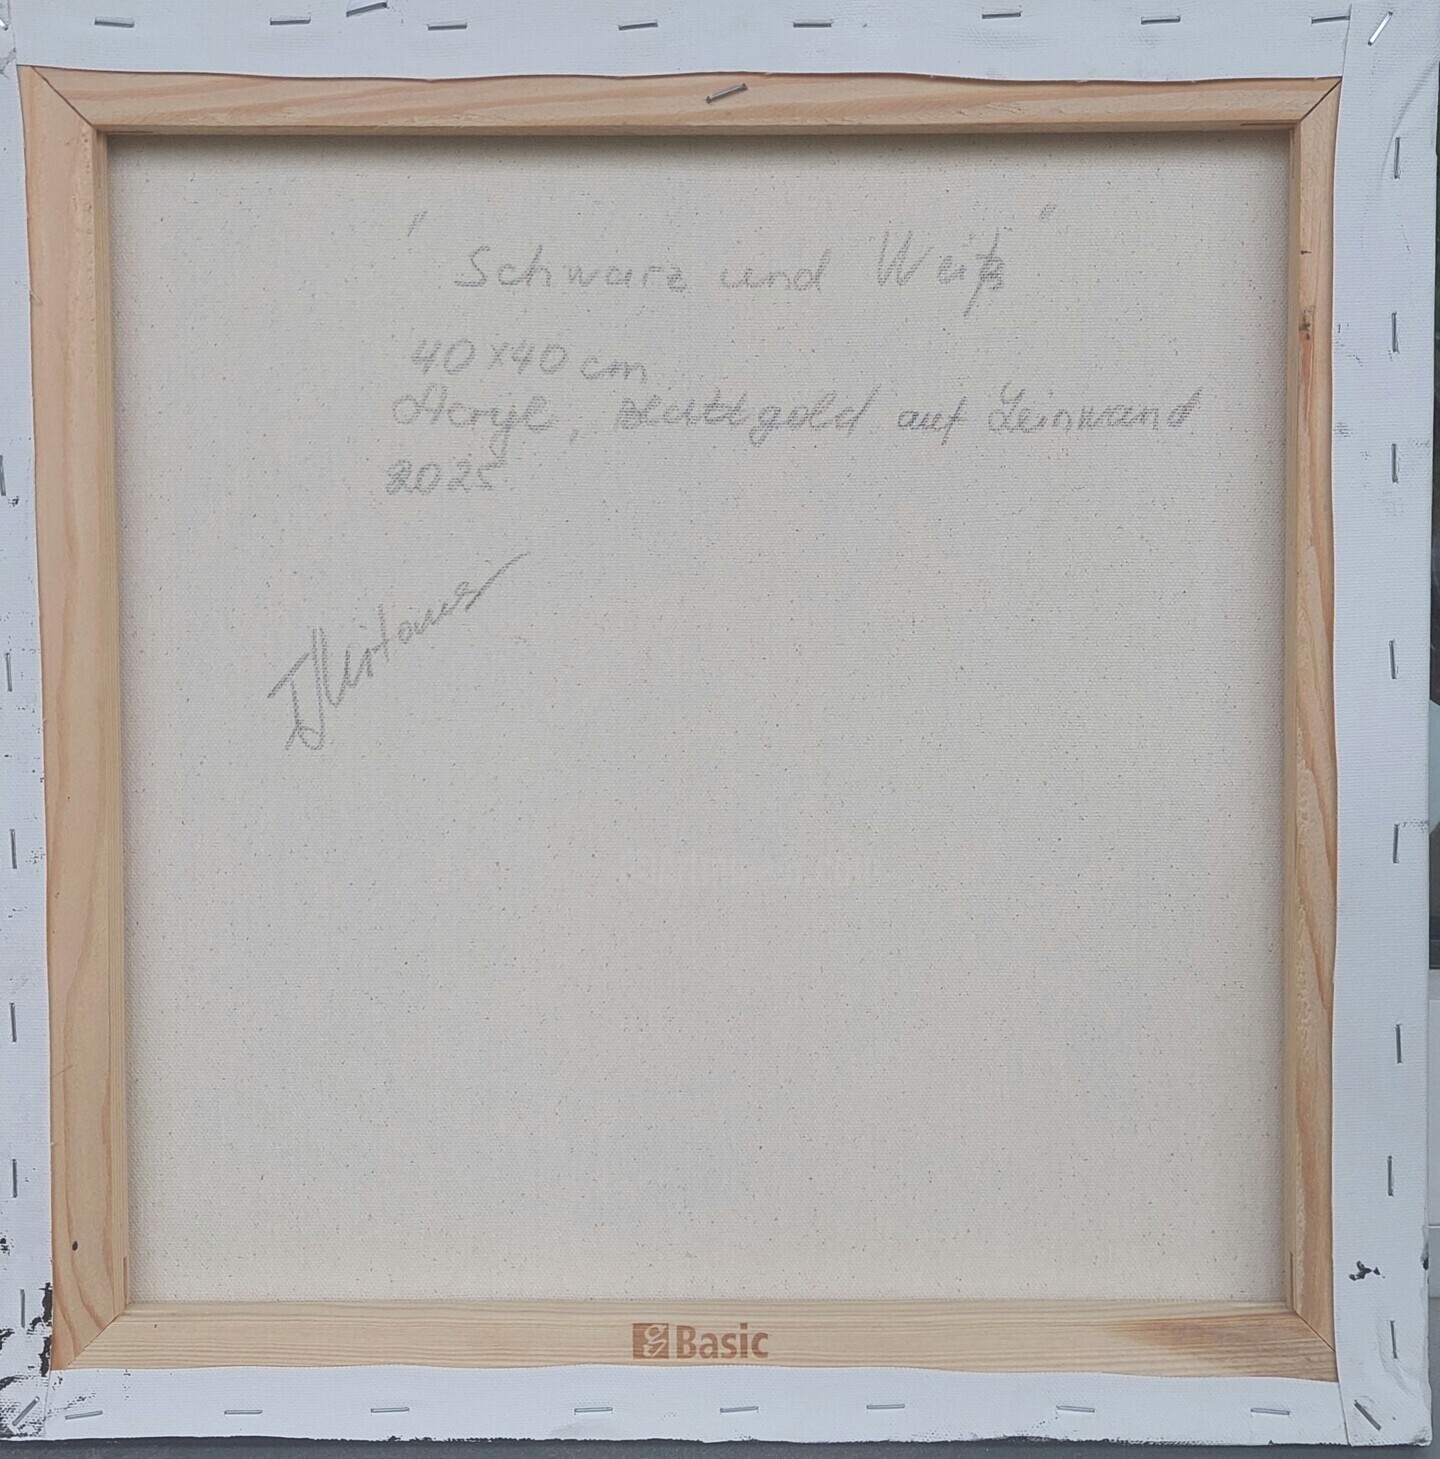 " Schwarz und Weiß "
40 x 40 cm
Acryl, Blattgold auf Leinwand
2025
Basic